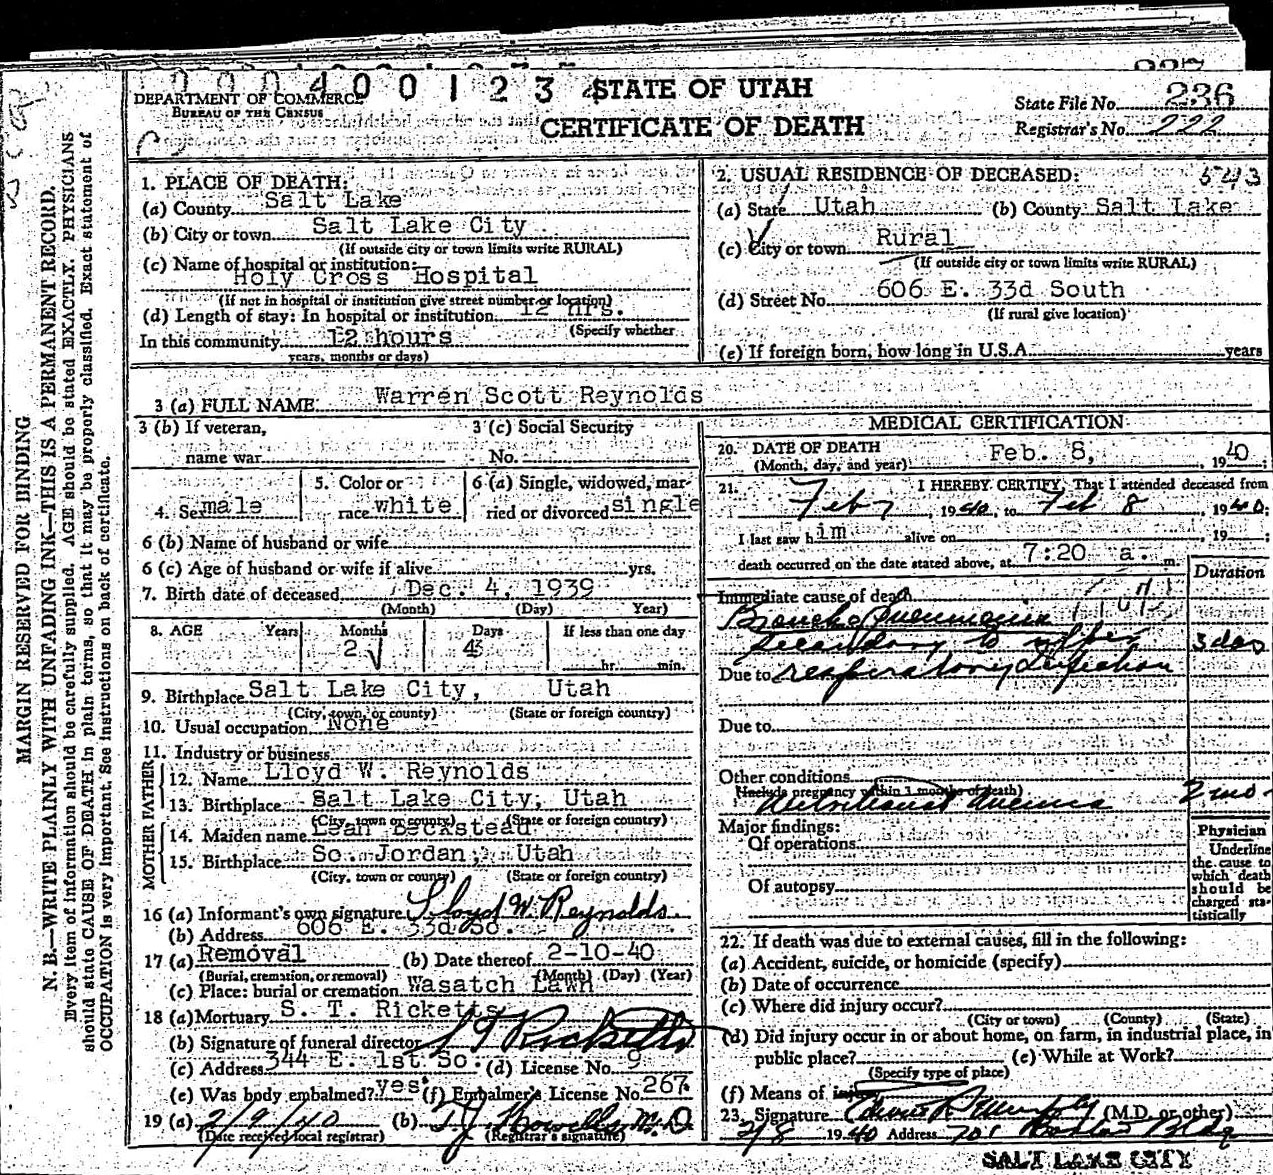 0 0 0 4 0 0 1 2 3
DEPARTMENT OF COMMERCE
BUREAU OF THE CENSUS
STATE OF UTAH
CERTIFICATE OF DEATH
State File No. 236
Registrar's No. 222
MARGIN RESERVED FOR BINDING
N. B.—WRITE PLAINLY WITH UNFADING INK—THIS IS A PERMANENT RECORD.
Every item of information should be carefully supplied. AGE should be stated EXACTLY. PHYSICIANS
should state CAUSE OF DEATH in plain terms, so that it may be properly classified. Exact statement of
OCCUPATION is very important. See instructions on back of certificate.
1. PLACE OF DEATH:
(a) County Salt Lake
(b) City or town Salt Lake City
(If outside city or town limits write RURAL)
(c) Name of hospital or institution:
Holy Cross Hospital
(If not in hospital or institution give street number or location)
(d) Length of stay: In hospital or institution 12 hrs.
(Specify whether
In this community 12 hours
years, months or days)
2. USUAL RESIDENCE OF DECEASED: 543
(a) State Utah (b) County Salt Lake
(c) City or town Rural
(If outside city or town limits write RURAL)
(d) Street No. 606 E. 33d South
(If rural give location)
(e) If foreign born, how long in U.S.A. years
3 (a) FULL NAME Warren Scott Reynolds
3 (b) If veteran,
name war
3 (c) Social Security
No.
4. Sex male
5. Color or
race white
6 (a) Single, widowed, mar-
ried or divorced single
6 (b) Name of husband or wife
6 (c) Age of husband or wife if alive yrs.
7. Birth date of deceased Dec. 4, 1939
(Month) (Day) Year)
8. AGE Years Months Days If less than one day
2 4 hr. min.
9. Birthplace Salt Lake City, Utah
(City, town, or county) (State or foreign country)
10. Usual occupation None
11. Industry or business
FATHER
12. Name Lloyd W. Reynolds
13. Birthplace Salt Lake City, Utah
(City, town or county) (State or foreign country)
MOTHER
14. Maiden name Leah Beckstead
15. Birthplace So. Jordan, Utah
(City, town or county) (State or foreign country)
16 (a) Informant's own signature Lloyd W. Reynolds
(b) Address 606 E. 33d So.
17 (a) Removal (b) Date thereof 2-10-40
(Burial, cremation, or removal) (Month) (Day) (Year)
(c) Place: burial or cremation Wasatch Lawn
18 (a) Mortuary S. T. Ricketts
(b) Signature of funeral director S T Ricketts
(c) Address 344 E. 1st So. (d) License No. 9
(e) Was body embalmed? yes (f) Embalmer's License No. 267
19 (a) 2/9/40 (b) T.J. Howells, M.D.
(Date received local registrar) (Registrar's signature)
MEDICAL CERTIFICATION
20. DATE OF DEATH
(Month, day, and year) Feb. 8, 1940;
21. I HEREBY CERTIFY, That I attended deceased from
Feb 7, 1940, to Feb 8, 1940;
I last saw him alive on , 19 ;
death occurred on the date stated above, at 7:20 a. m.
Duration
Immediate cause of death
Broncho Pneumonia
secondary to upper 3 das
Due to respiratory infection
Due to
Other conditions
(Include pregnancy within 3 months of death)
Nutritional Anemia 2 mo.
Major findings:
Of operations
Of autopsy
Physician
Underline
the cause to
which death
should be
charged sta-
tistically
22. If death was due to external causes, fill in the following:
(a) Accident, suicide, or homicide (specify)
(b) Date of occurrence
(c) Where did injury occur?
(City or town) (County) (State)
(d) Did injury occur in or about home, on farm, in industrial place, in
public place? (e) While at Work?
(Specify type of place)
(f) Means of injury
23. Signature (M.D. or other)
2/8 1940 Address 701 Boston Bldg
SALT LAKE CITY